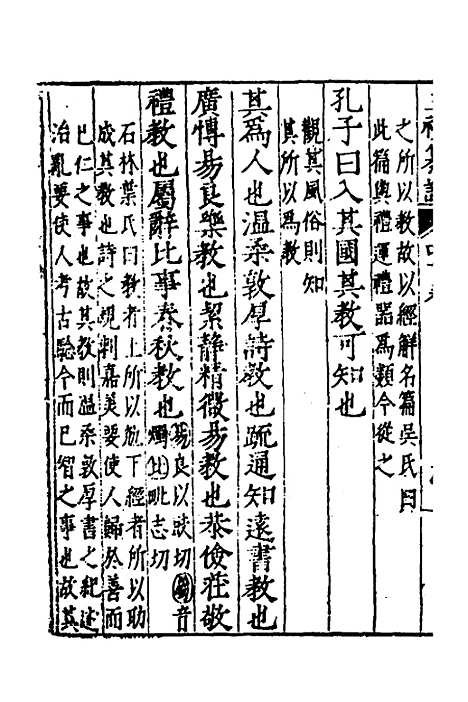 之所以教故以經解名篇吳氏曰
此篇與禮運禮器為類今從之
孔子曰入其國其教可知也
觀其風俗則知
其所以為教
其為人也溫柔敦厚詩教也疏通知遠書教也
廣博易良樂教也絜靜精微易教也恭儉莊敬
禮教也屬辭比事春秋教也 易良以豉切屬音
燭比毗志切
石林葉氏曰教者上所以勉下經者所以助
成其教也詩之規刺嘉美要使人歸於善而
已仁之事也故其教則溫柔敦厚書之紀述
治亂要使人考古驗今而已智之事也故其